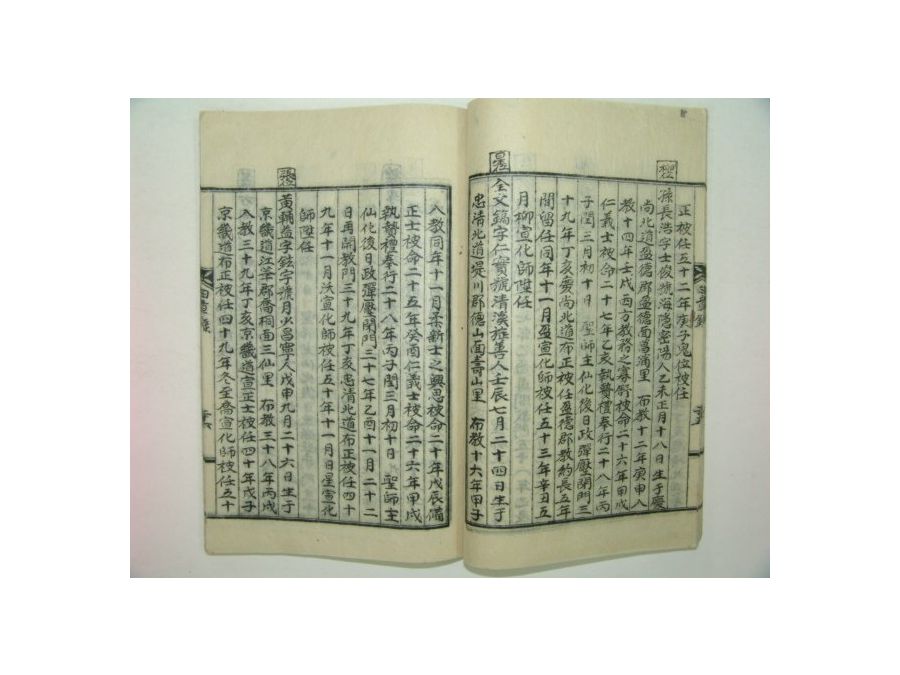 正被任五十二年庚子鬼位被任
孫長浩字士俊號海隱密陽人乙未正月十八日生于慶
尚北道盈德郡盈德面菖浦里 布教十二年庚申入
教十四年壬戌西方教務之寡 被命二十六年甲戌
仁義士被命二十七年乙亥執贄禮奉行二十八年丙
子閏三月初十日 聖師主仙化後日政彈壓閉門三
十九年丁亥慶尚北道布正被任盈德郡教約長五年
間留任同年十一月盈宣化師被任五十三年辛丑五
月柳宣化師陞任
全文鎬字仁實號清漢旌善人壬辰七月二十四日生于
忠清北道堤川郡德山面壽山里 布教十六年甲子
入教同年十一月柔新士之興思被命二十年戊辰備
正士被命二十五年癸酉仁義士被命二十六年甲戌
執贄禮奉行二十八年丙子閏三月初十日 聖師主
仙化後日政彈壓閉門三十七年乙酉十一月二十二
日再開教門三十九年丁亥忠清北道布正被任四十
九年十一月沃宣化師被任五十年十一月日星宣化
師陞任
黃輔益字鉉字號月火昌寧人戊申九月二十六日生于
京畿道江華郡喬桐面三仙里 布教三十八年丙戌
入教三十九年丁亥京畿道宣正被任四十年戊子
京畿道布正被任四十九年冬至喬宣化師被任五十